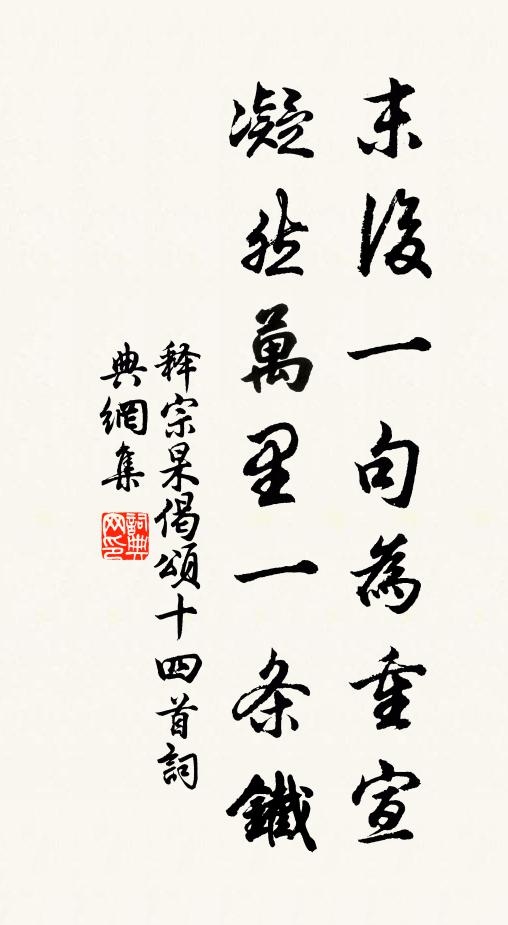 末後一句為重宣
凝然萬里一条鐵
释宗杲偈頌十四首詞
典網集
詞典
网印